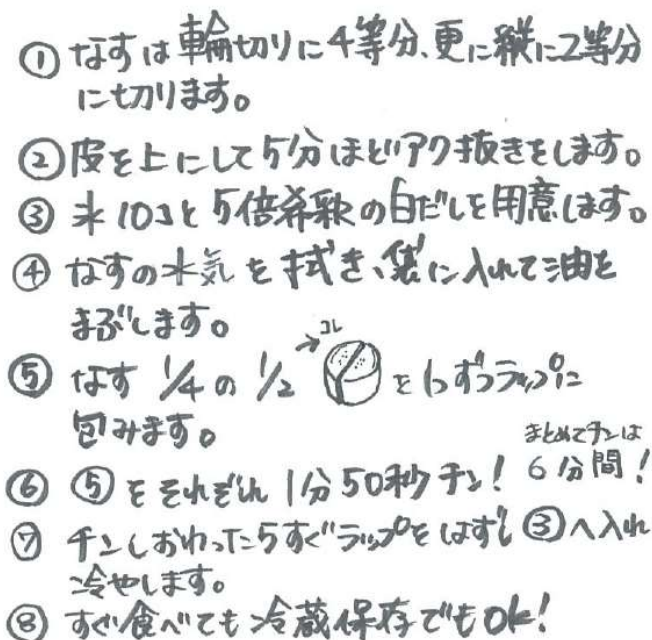 ① なすは輪切りに4等分、更に縦に2等分
に切ります。
② 皮を上にして5分ほどアク抜きをします。
③ 氷10コと5倍希釈の白だしを用意します。
④ なすの水気を拭き、袋に入れて油を
まぶします。
コレ
⑤ なす 1/4の1/2 を1つずつラップに
包みます。
まとめてチンは
6分間!
⑥ ⑤をそれぞれ1分50秒チン!
⑦ チンしおわったらすぐラップをはずし③へ入れ
冷やします。
⑧ すぐ食べても冷蔵保存でもOK!